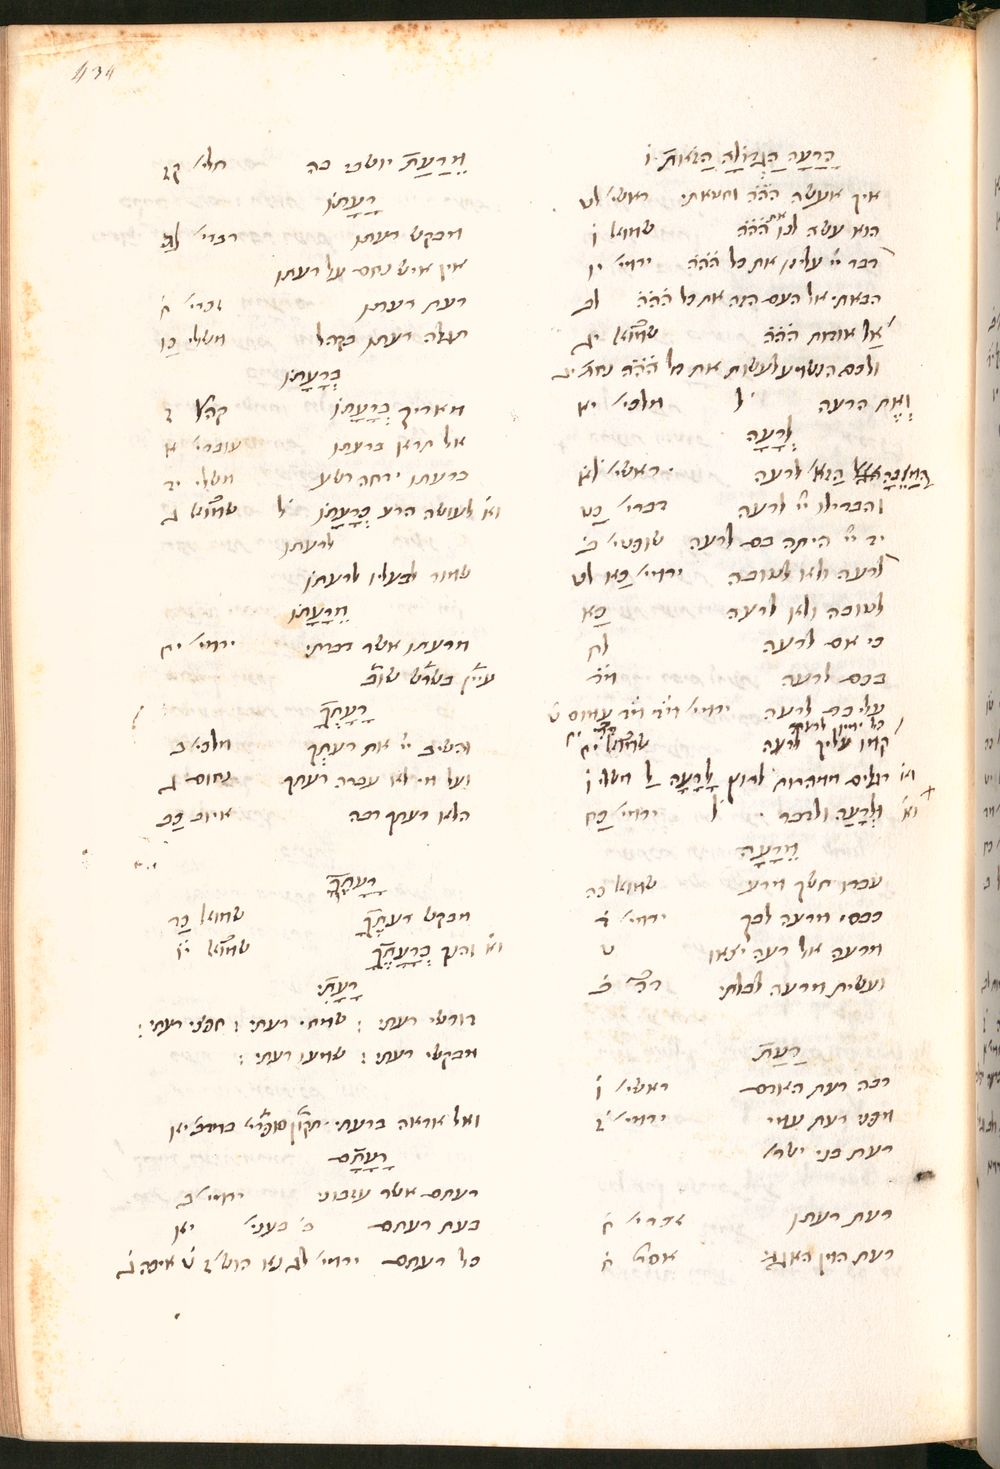 434
הָרָעָה הַגְּדוֹלָה הַזֹּאת ו
איך אעשה ההה וחטאתי ראשי׳ לט
הוא עשה לנו את ההה שמוא ו
דבר יי עלינו את כל ההה ירמי׳ יו
הבאתי אל העם הזה את כל ההה לב
אַל אודות ההה
ולכם הנשמע לעשות את כל ההה נחמ׳ יג
וְאֶת הרעה ל מלכי׳ יא
לְרָעָה
לרעה ראשי׳
והבדילו יי לרעה דברי׳ כט
יד יי היתה בם לרעה שופטי׳ ב
לרעה ולא לטובה ירמי׳ כא לט
לטובה ולא לרעה כא
כי אם לרעה לח
בכם לרעה מד
עליכם לרעה ירמי׳ מד מד עמוס ט
קמו עליך לרעה
רגלים ממהרות לרוץ לָרָעָה ל משלי ו
וא׳ וְלְרָעָה ולדבר ל ירמי׳ כח
מֵרָעָה
עבדו חשך מרעה שמוא כה
כבסי מרעה לבך ירמי׳ ד
מרעה אל רעה יצאו ט
ועשית מרעה לבלתי דה ב
רָעַת
רבה רעת האדם ראשי׳ ו
מפני רעת עמי ירמי׳ ז
רעת בני ישר׳
רעת רעתו זכרי׳ ח
רעת המן האגגי אסת׳ ח
מֵרָעַת יושבי בה תלי׳ קז
רָעָתוֹ
מבקש רעתו דברי׳
אין איש נחם על רעתו
רעת רעתו זכרי׳ ח
תגלה רעתו בקהל משלי כו
בְּרָעָתוֹ
מאריך בְּרָעָתוֹ קהל׳ ז
אל תרא ברעתו עובדי׳ א
ברעתו ידחה רשע משלי יד
וא׳ לעושה הרע כְּרָעָתוֹ ל שמוא׳ ג
לרעתו
שמור לבעליו לרעתו
מֵרָעָתוֹ
מרעתו אשר דברתי ירמי׳ יח
עיין בשרש שוב
רָעָתְךָ
והשיב יי את רעתך מלכי׳ ב
ועל מי לא עברה רעתך נחום ג
הלא רעתך רבה איוב כב
רָעָתֶךָ
מבקש רעתֶךָ שמוא כד
וא׳ והנך בְּרָעָתֶךָ שמוא׳ יו
רָעָתִי
דורשי רעתי : שמחי רעתי : חפצי רעתי :
מבקשי רעתי : שמעו רעתי :
ואל אראה ברעתי תקון סופרי׳ במדב׳ יא
רָעָתָם
רעתם אשר עזבוני ירמי׳ א
בעת רעתם ב׳ בענין׳ יא
כל רעתם ירמי׳ לג נא הוש׳ ז ט איכה ג